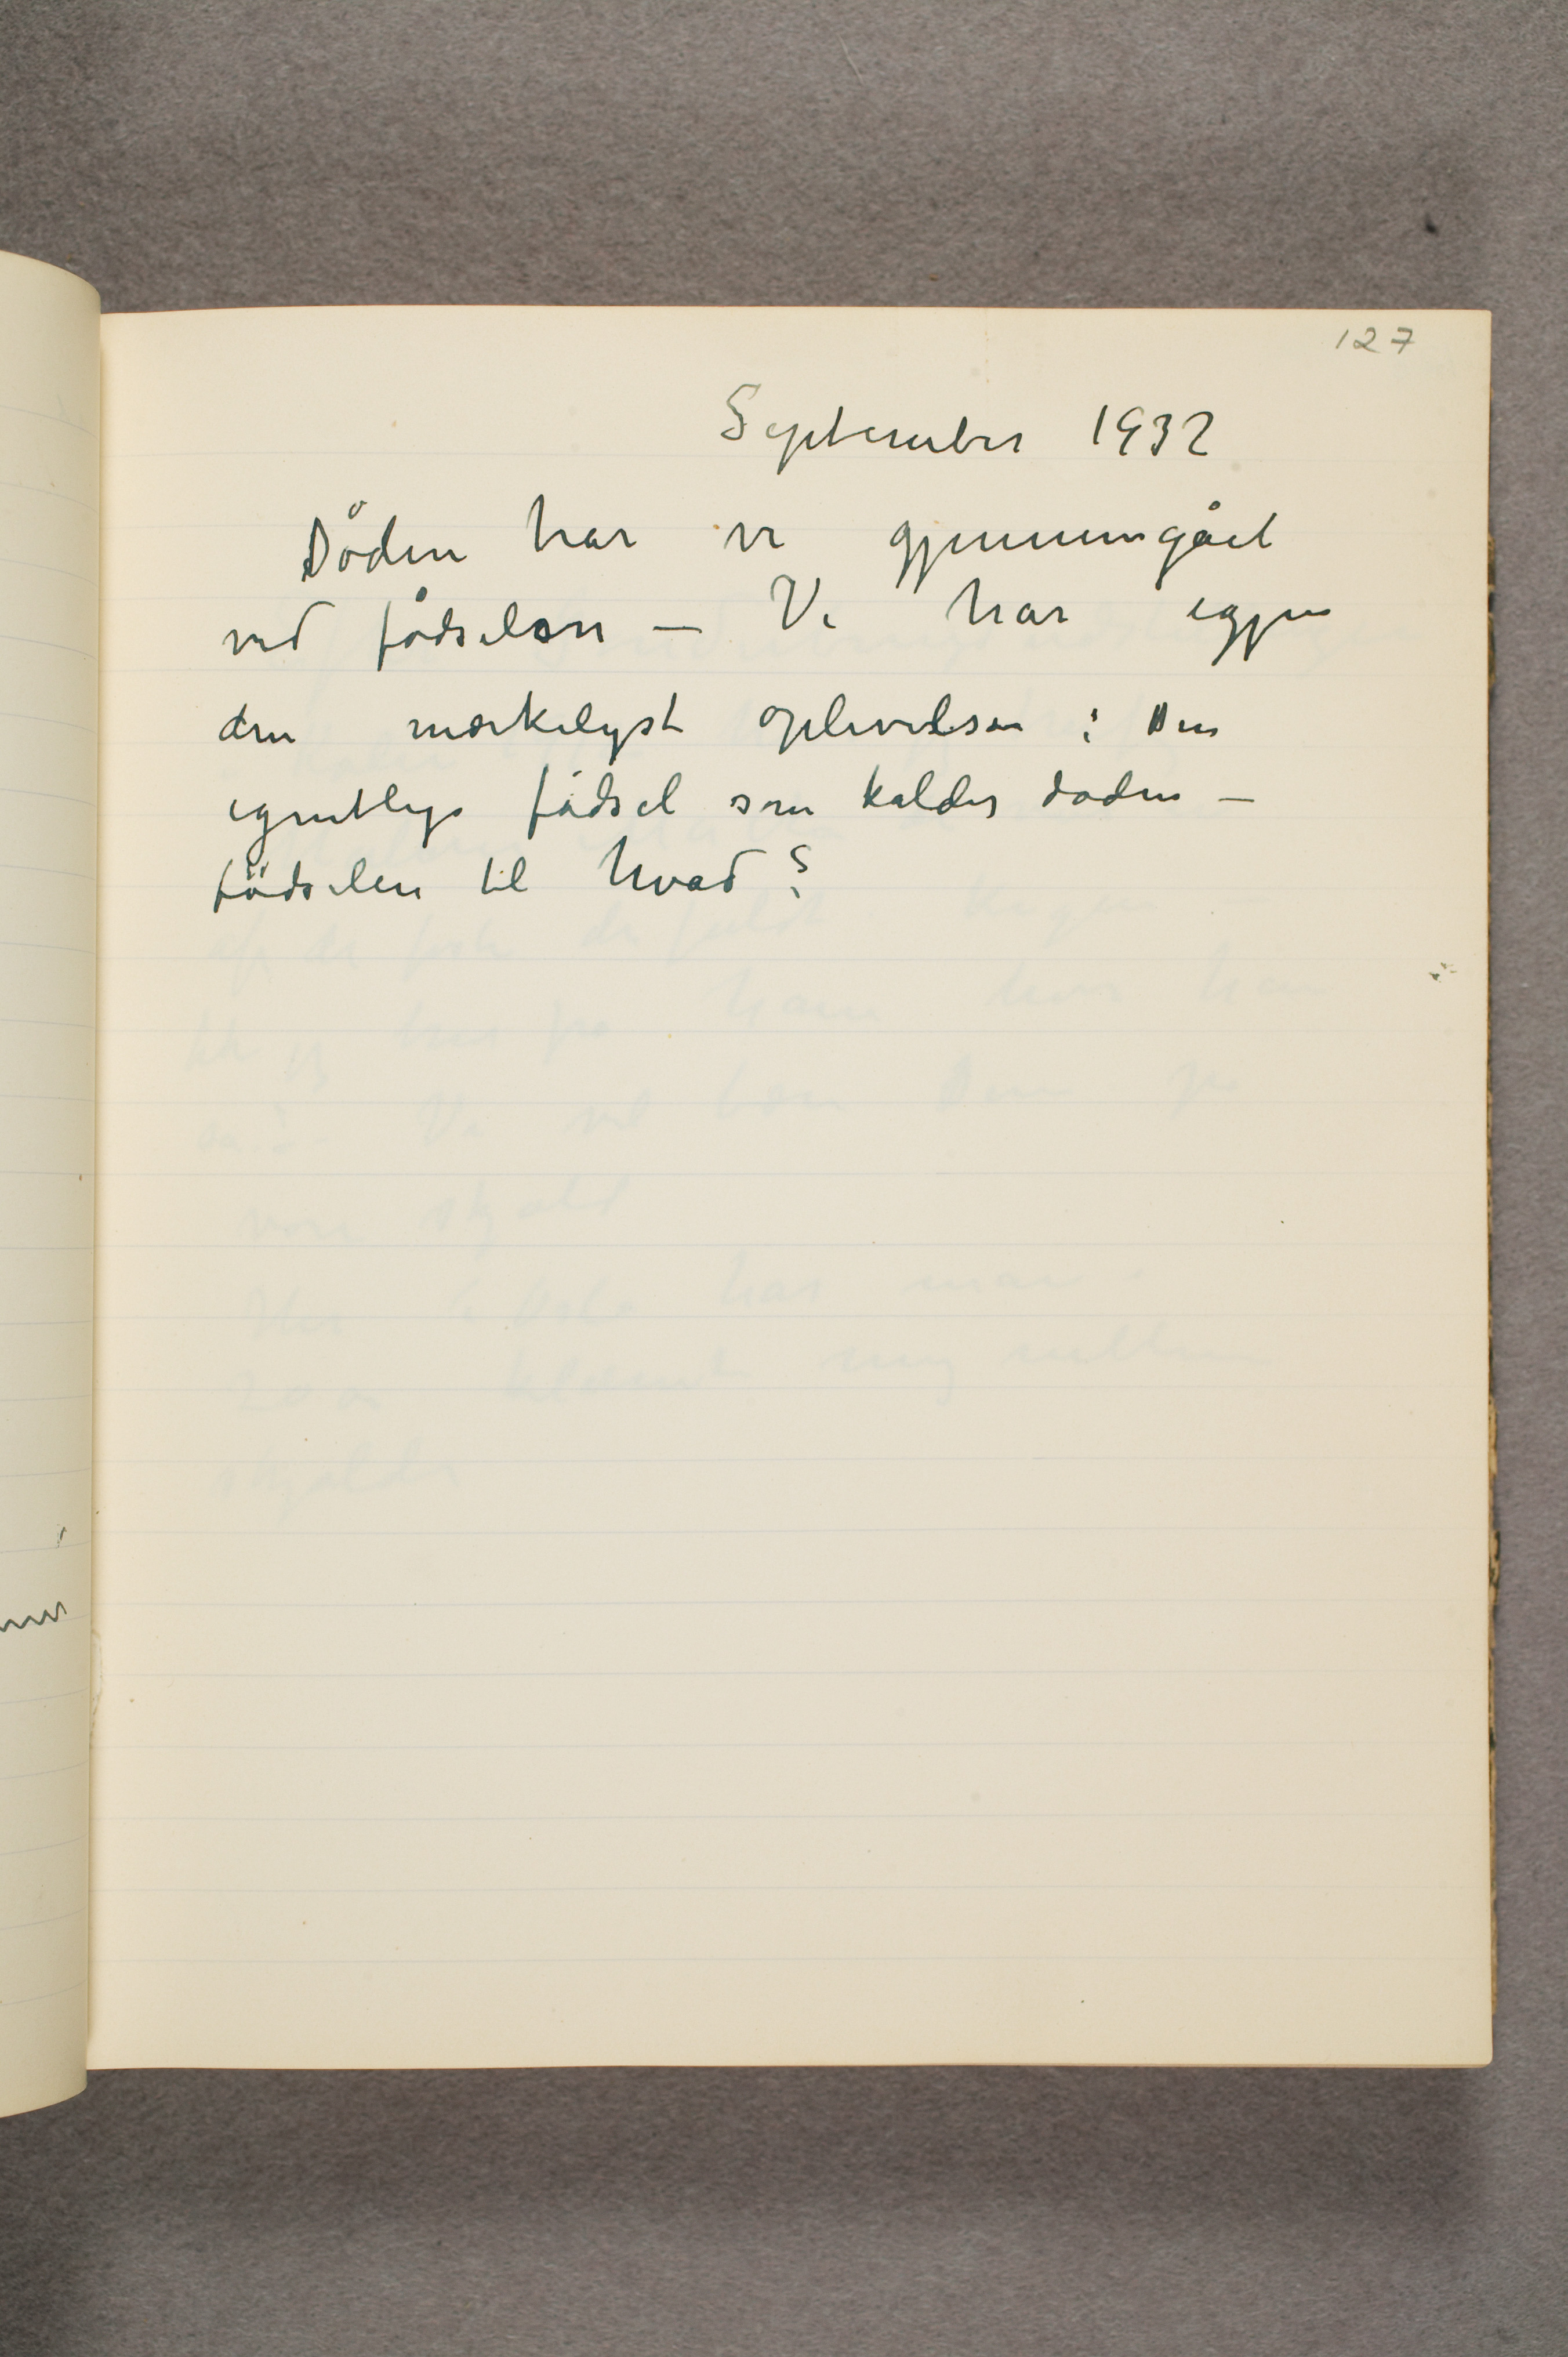 127
September 1932
Døden har vi gjennemgået
ved fødselen — Vi har igjen
den mærkeligste oplevelsen : Den
egentlige fødsel som kaldes døden —
fødselen til hvad ?